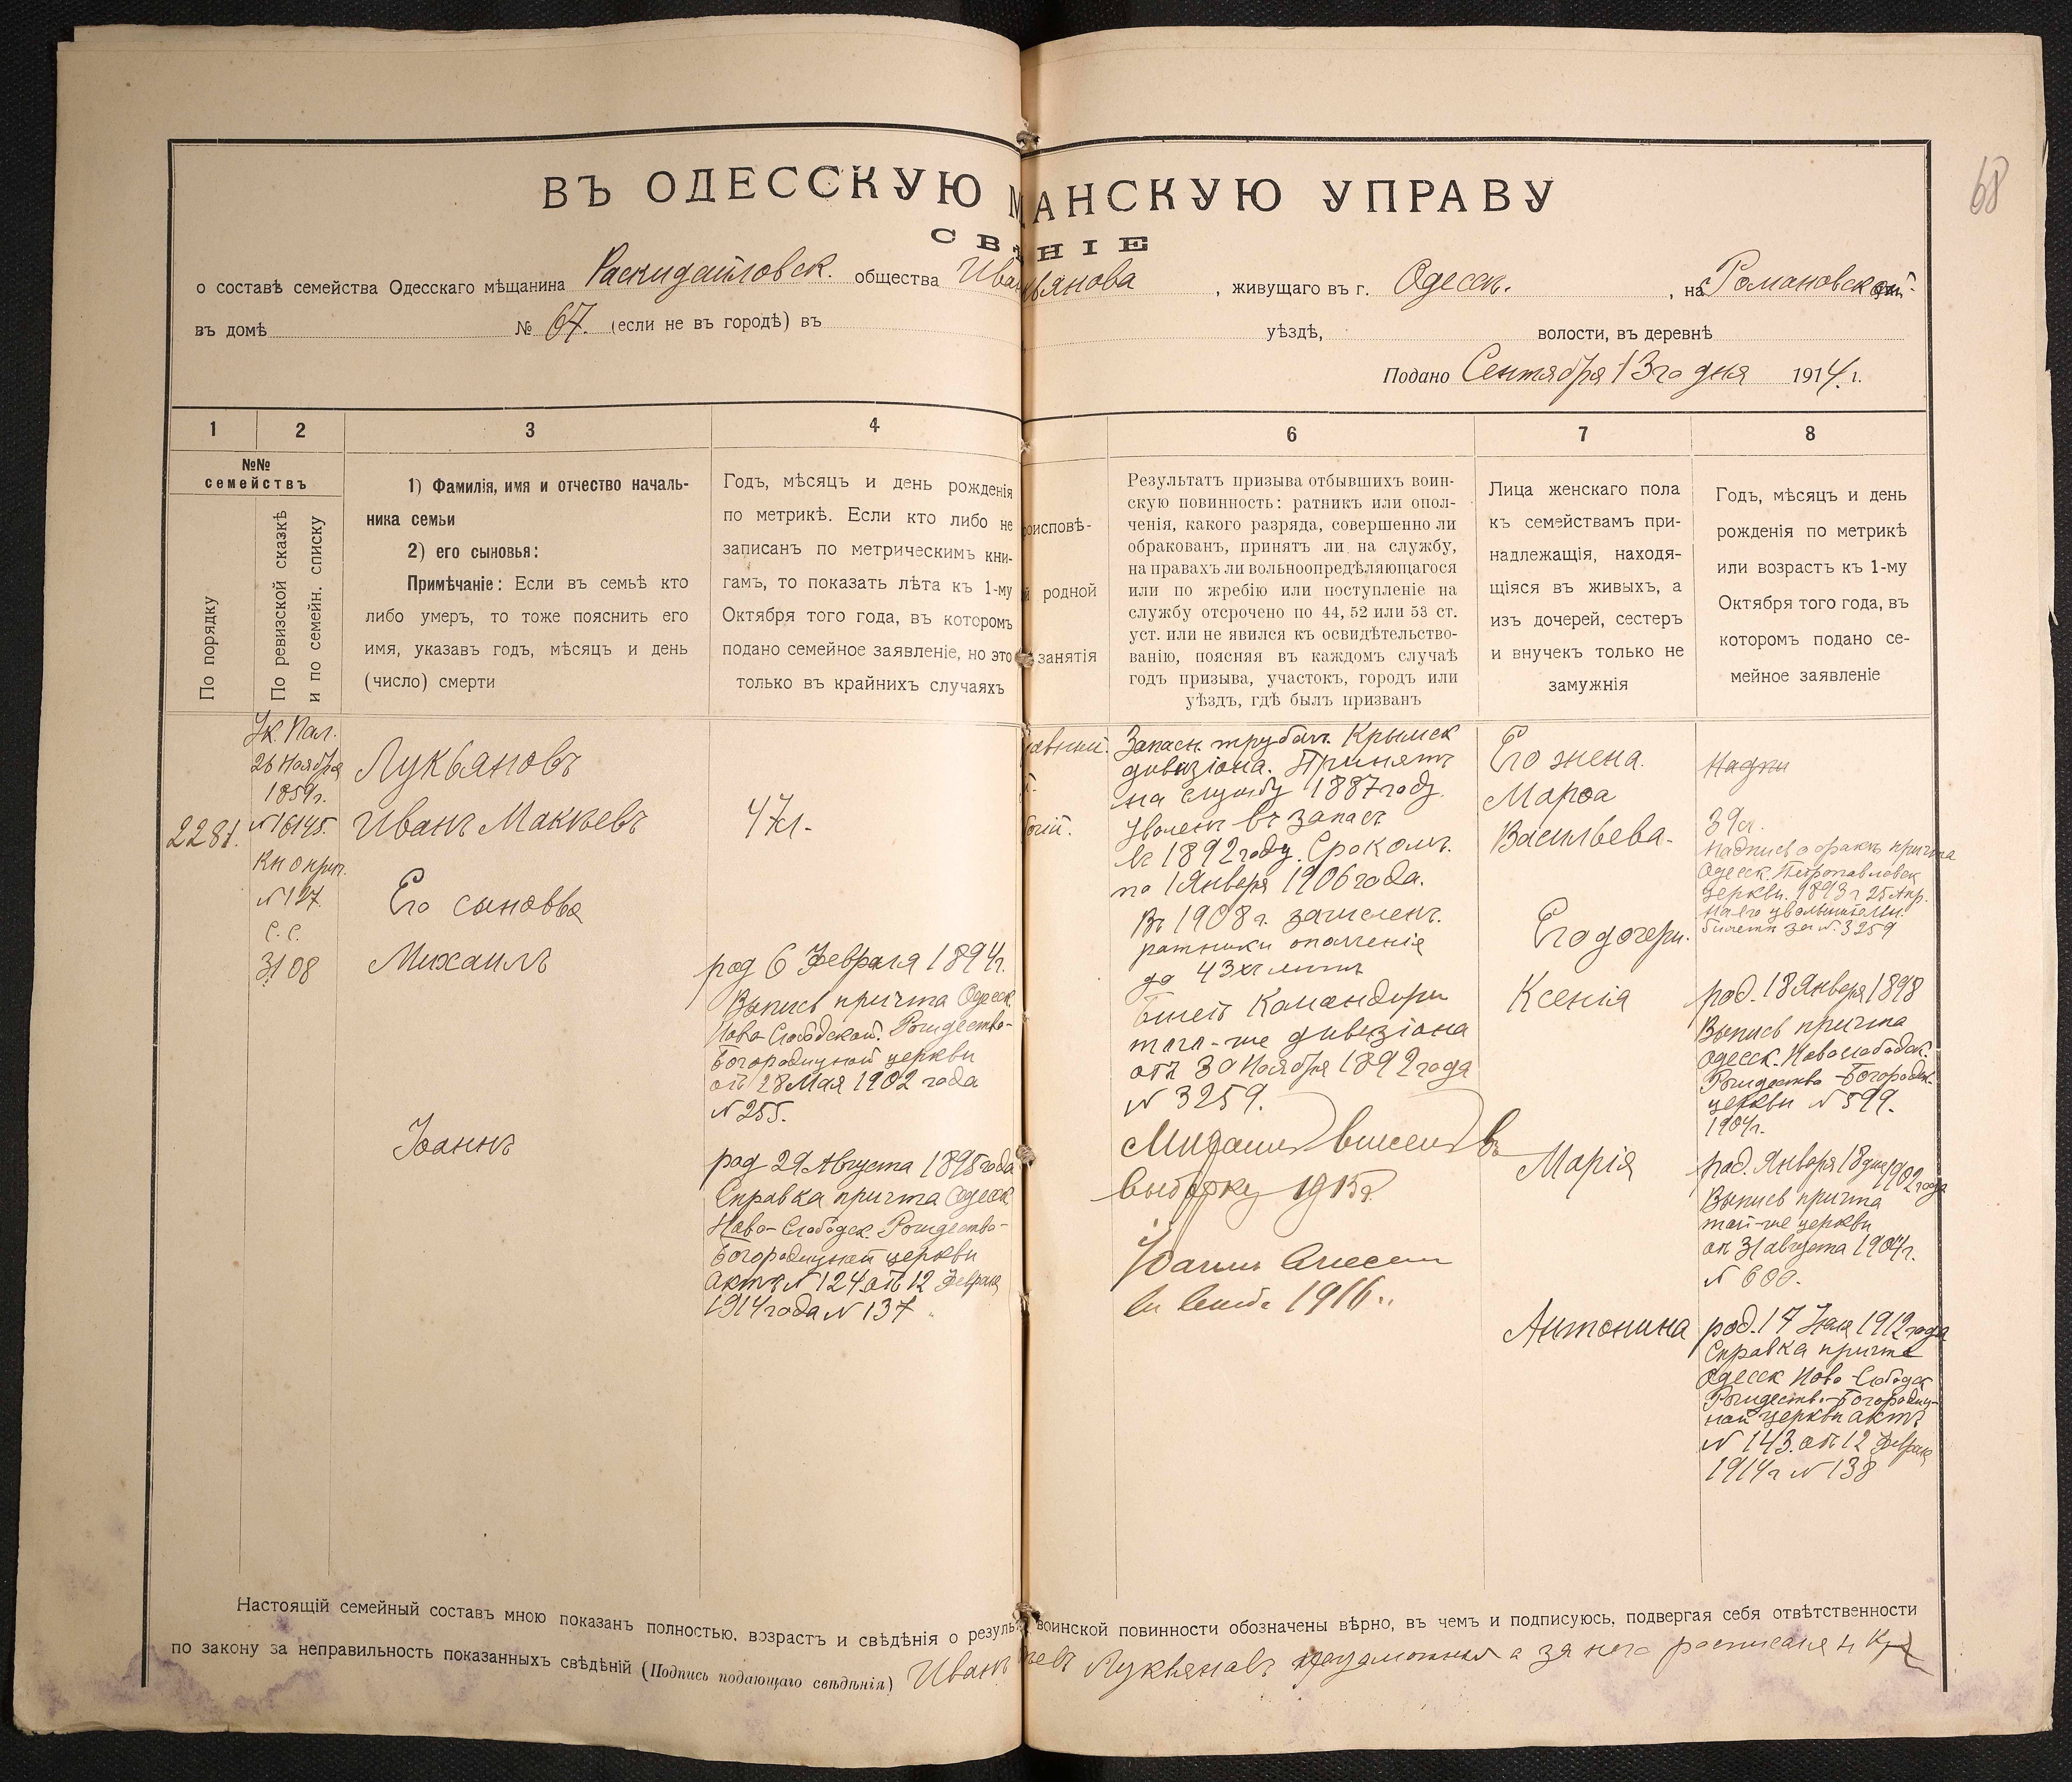 68
ВЪ ОДЕССКУЮ МАНСКУЮ УПРАВУ
СВ НІЕ
о составѣ семейства Одесскаго мѣщанина Раскидайловск. общества Ива ьянова, живущаго въ г. Одесск., на Романовской
въ домѣ № 67. (если не въ городѣ) въ уѣздѣ, волости, въ деревнѣ
Подано Сентября 13го дня 1914 г.
1
2
3
4
6
7
8
№№
семействъ
По порядку
По ревизской сказкѣ
и по семейн. списку
1) Фамилія, имя и отчество началь-
ника семьи
2) его сыновья:
Примѣчаніе: Если въ семьѣ кто
либо умеръ, то тоже пояснить его
имя, указавъ годъ, мѣсяцъ и день
(число) смерти
Годъ, мѣсяцъ и день рожденія
по метрикѣ. Если кто либо не
записанъ по метрическимъ кни-
гамъ, то показать лѣта къ 1-му
Октября того года, въ которомъ
подано семейное заявленіе, но это
только въ крайнихъ случаяхъ
роисповѣ-
й родной
занятія
Результатъ призыва отбывшихъ воин-
скую повинность: ратникъ или опол-
ченія, какого разряда, совершенно ли
обракованъ, принятъ ли на службу,
на правахъ ли вольноопредѣляющагося
или по жребію или поступленіе на
службу отсрочено по 44, 52 или 53 ст.
уст. или не явился къ освидѣтельство-
ванію, поясняя въ каждомъ случаѣ
годъ призыва, участокъ, городъ или
уѣздъ, гдѣ былъ призванъ
Лица женскаго пола
къ семействамъ при-
надлежащія, находя-
щіяся въ живыхъ, а
изъ дочерей, сестеръ
и внучекъ только не
замужнія
Годъ, мѣсяцъ и день
рожденія по метрикѣ
или возрастъ къ 1-му
Октября того года, въ
которомъ подано се-
мейное заявленіе
2281.
Ук. Пал.
26 Ноября
1859 г.
№ 16145.
Кн о прич.
№ 127.
С. С.
3108
Лукьяновъ
Иванъ Макѣевъ
Его сыновья
Михаилъ
Іоаннъ
47 л.
род 6 Февраля 1894 г.
Выпись причта Одесск.
Ново-Слободской. Рождество-
Богородичной церкви
отъ 28 Мая 1902 года
№ 255.
род 29 Августа 1895 года
Справка причта Одесск
Ново-Слободск. Рождество-
Богородичной церкви
Актъ № 124 отъ 12 Февраля
1914 года № 137
авный.
Запасн. трубач. Крымск
дивизіона. Принятъ
на службу 1887 году.
Уволенъ въ запасъ
въ 1892 году. Срокомъ.
по 1 Января 1906 года.
Въ 1908 г. зачисленъ.
ратники ополченія
до 43хъ лѣтъ
Билетъ Командира
того-же дивизіона
отъ 30 Ноября 1892 года
№ 3259.
Михаилъ внесенъ въ
выборку 1915 г.
Іоаннъ внесен
1916..
Его жена.
Марѳа
Васильева.
Его дочери.
Ксенія
Марія
Антонина
Надпи
39 л.
Надпись о бракѣ причта
Одесск. Петропавловск
церкви. 1893 г 25 Апр.
на его увольнительн.
билетѣ за № 3259
род. 18 Января 1898
Выпись причта
Одесск. Новослободск.
Рождество-Богородич.
церкви № 599.
1904 г.
род. Января 18 дня 1902 года
Выпись причта
той-же церкви
от 31 августа 1904 г.
№ 600.
род. 17 1912 года
Справка причта
Одесск Ново-Слободск
Рождеств.-Богородич-
ной церкви актъ
№ 143. отъ 12 Февраля
1914 г № 138
Настоящій семейный составъ мною показанъ полностью, возрастъ и свѣдѣнія о резуль воинской повинности обозначены вѣрно, въ чемъ и подписуюсь, подвергая себя отвѣтственности
по закону за неправильность показанныхъ свѣдѣній (Подпись подающаго свѣдѣнія) Иванъ евъ Лукьяновъ а за него росписался